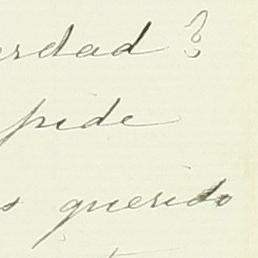 erdad?
pide
s querido